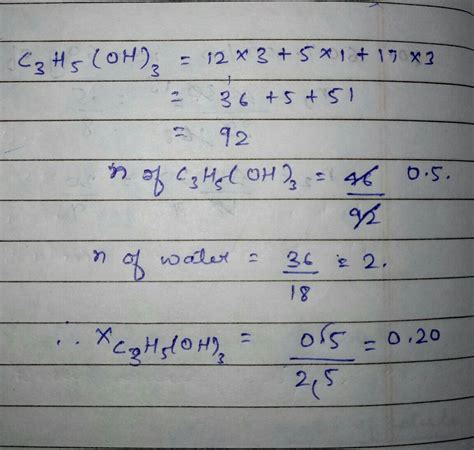 C₃H₅(OH)₃ = 12×3+5×1+17×3
= 36+5+51
= 92
n of C₃H₅(OH)₃ = 46/92 0.5.
n of water = 36/18 = 2.
∴ x C₃H₅(OH)₃ = 0.5/2.5 = 0.20